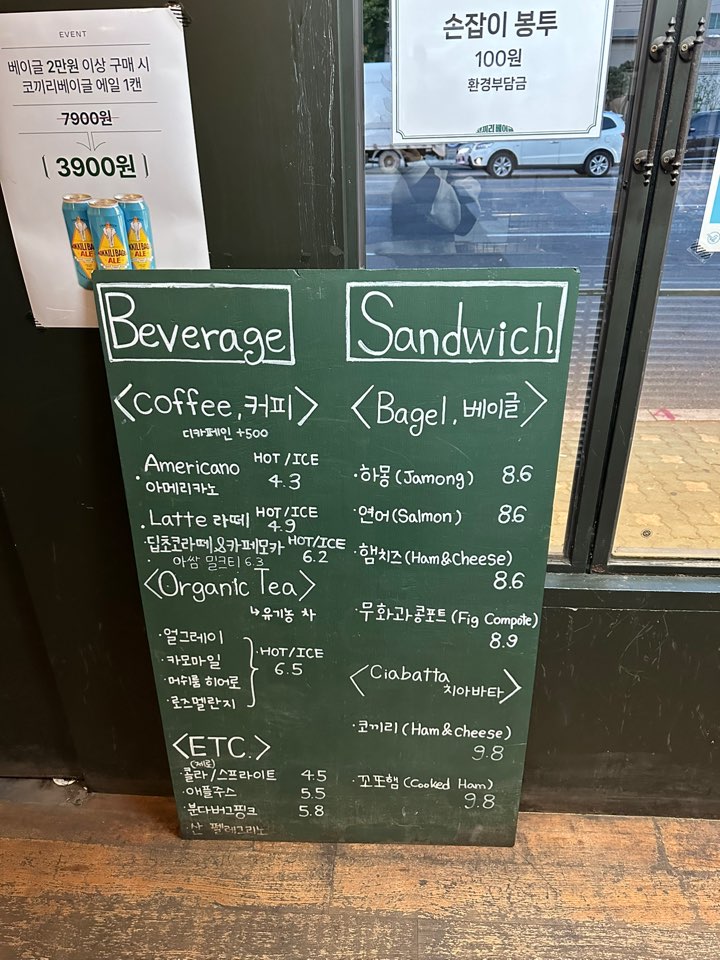 EVENT
베이글 2만원 이상 구매 시
코끼리베이글 에일 1캔
7900원
3900원
ALE
손잡이 봉투
100원
환경부담금
코끼리베이글
Beverage
<Coffee, 커피>
디카페인 +500
Americano HOT/ICE
아메리카노 4.3
Latte 라떼 HOT/ICE
4.9
딥초코라떼&카페모카 HOT/ICE
6.2
아쌈 밀크티 6.3
<Organic Tea>
↳유기농 차
얼그레이
카모마일
머쉬룸 히어로
로즈멜란지
HOT/ICE
6.5
<ETC.>
(제로)
콜라/스프라이트 4.5
애플주스 5.5
분다버그핑크 5.8
산 펠레그리노
Sandwich
<Bagel, 베이글>
하몽(Jamong) 8.6
연어(Salmon) 8.6
햄치즈(Ham&Cheese)
8.6
무화과콩포트(Fig Compote)
8.9
<Ciabatta
치아바타>
코끼리(Ham&cheese)
9.8
꼬또햄(Cooked Ham)
9.8